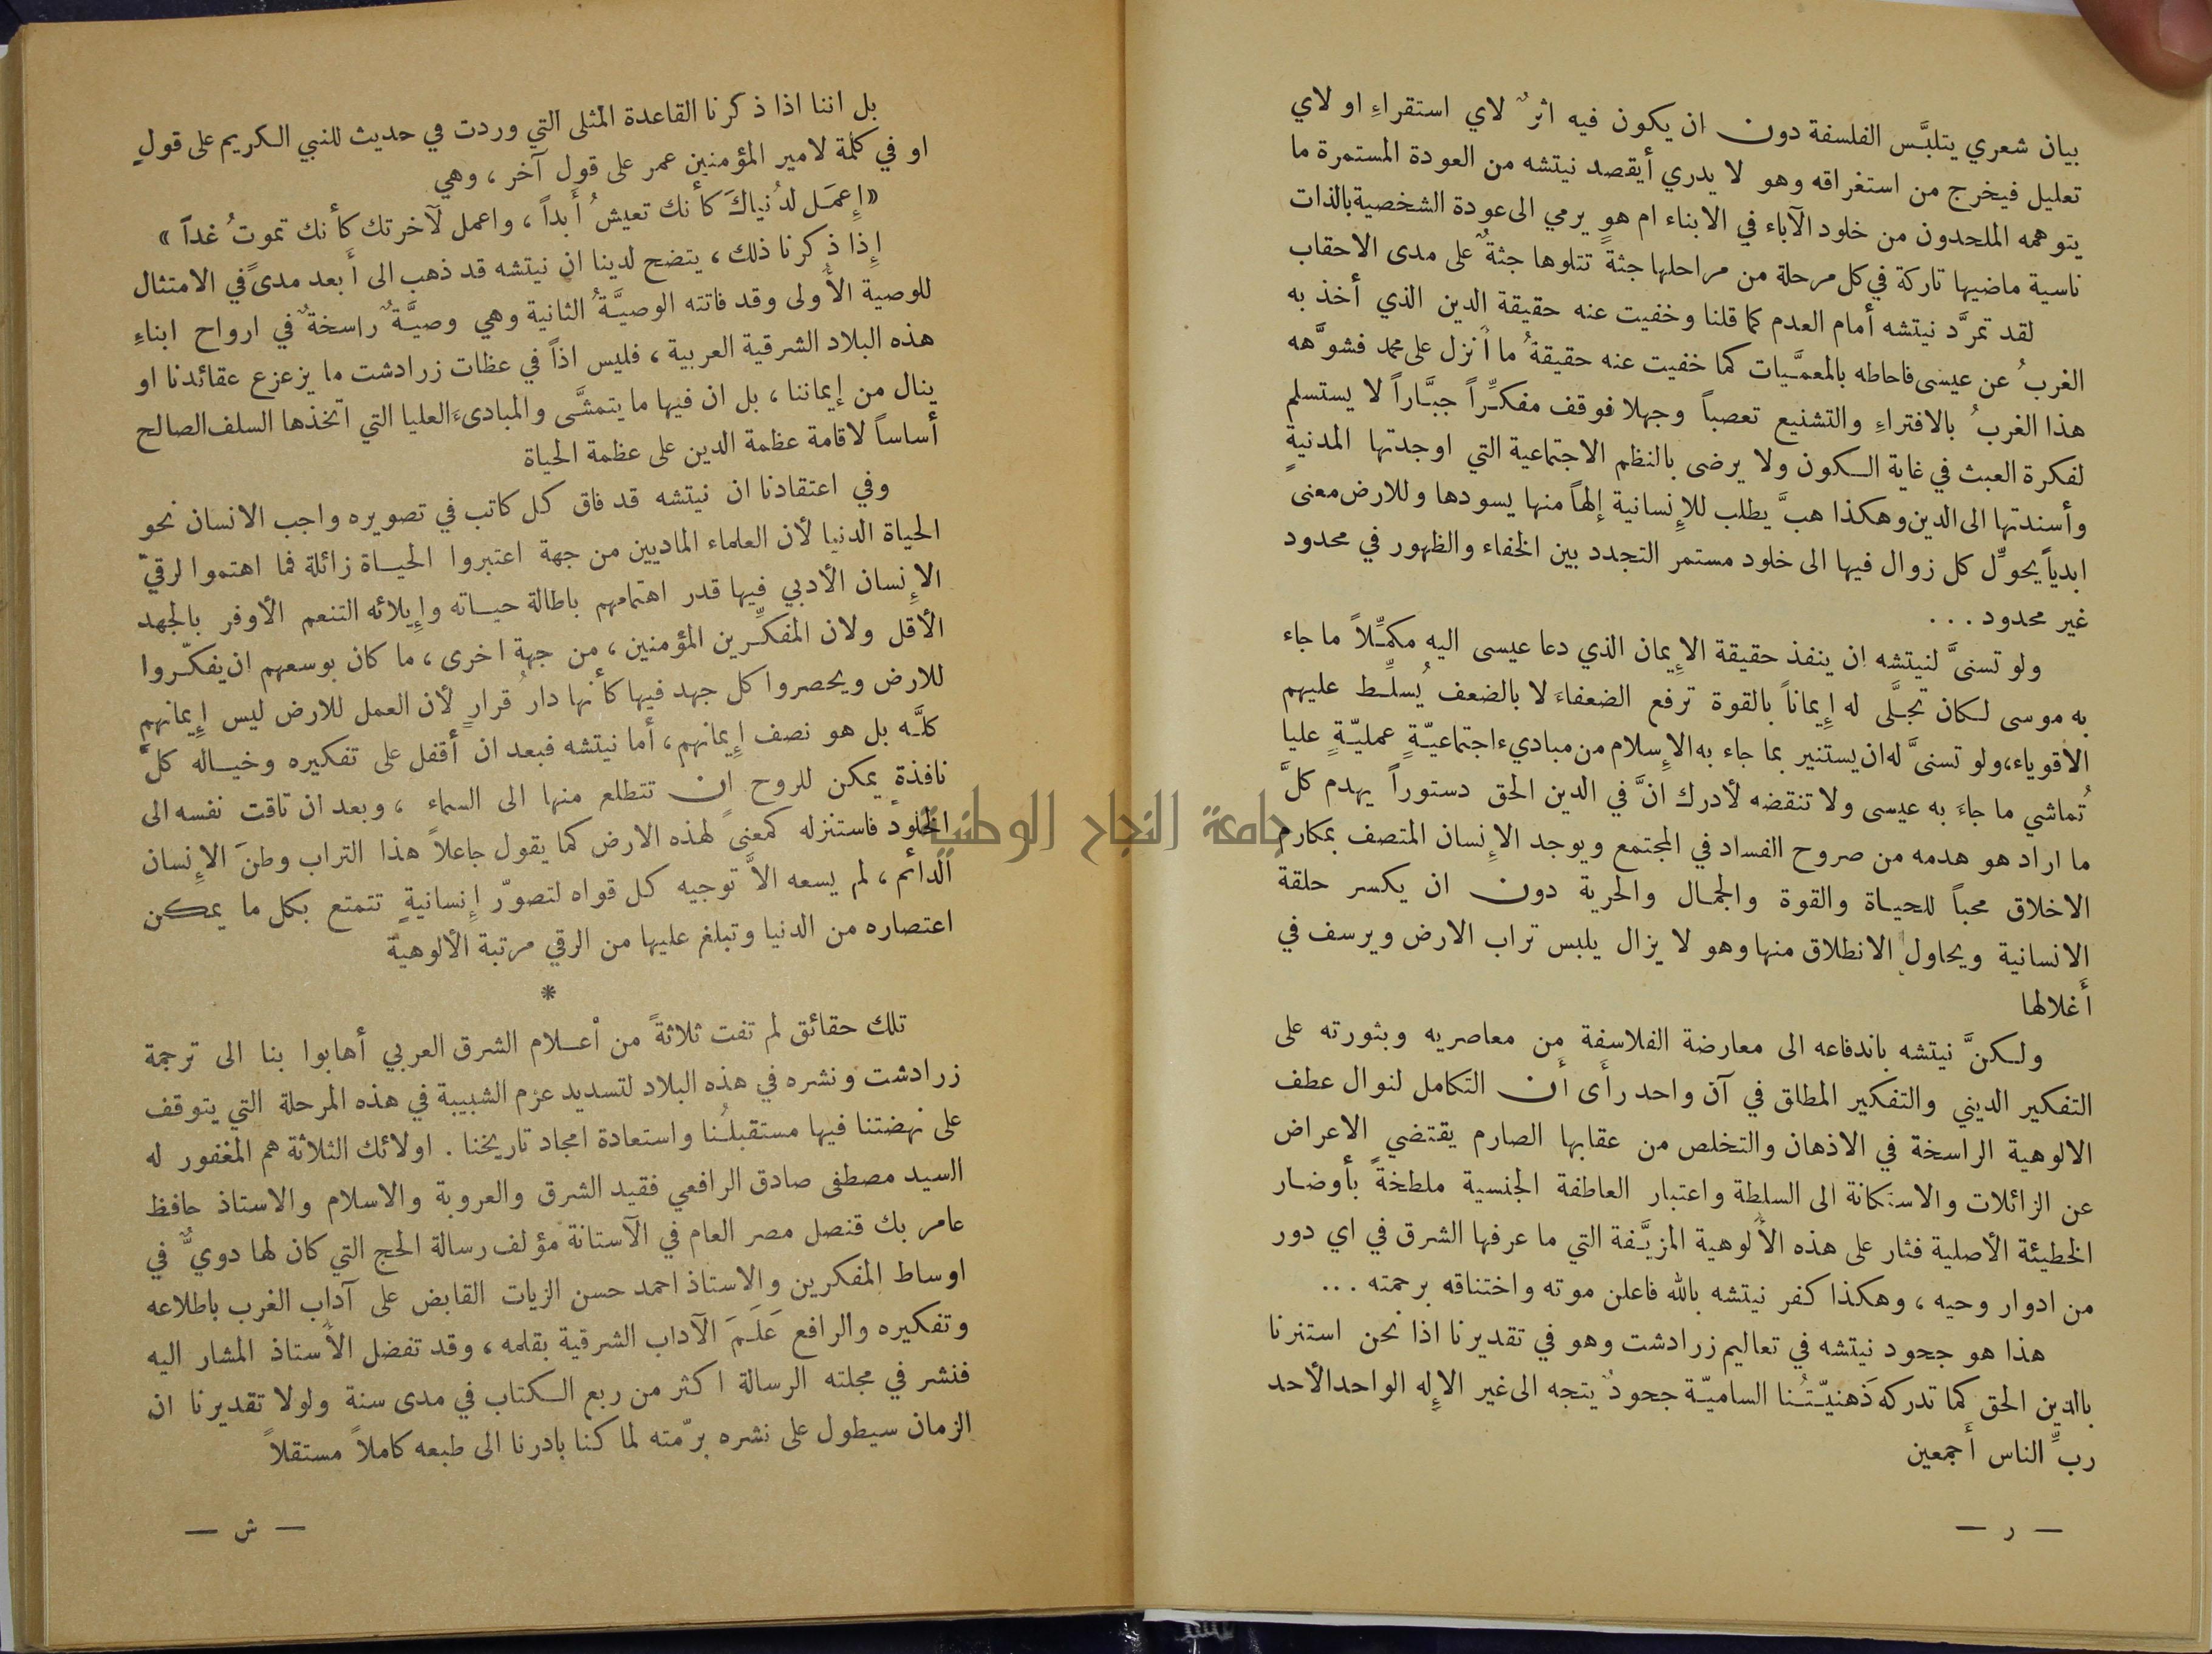 بيان شعري يتلبَّس الفلسفة دون ان يكون فيه اثرٌ لاي استقراءِ او لاي
تعليل فيخرج من استغراقه وهو لا يدري أيقصد نيتشه من العودة المستمرة ما
يتوهمه الملحدون من خلود الآباء في الابناء ام هو يرمي الى عودة الشخصية بالذات
ناسية ماضيها تاركة في كل مرحلة من مراحلها جثةً تتلوها جثةٌ على مدى الاحقاب
لقد تمرَّد نيتشه أمام العدم كما قلنا وخفيت عنه حقيقة الدين الذي أخذ به
الغربُ عن عيسى فاحاطه بالمعمَّيات كما خفيت عنه حقيقةُ ما أنزل على محمد فشوَّهه
هذا الغربُ بالافتراءِ والتشنيع تعصباً وجهلا فوقف مفكِّراً جبَّاراً لا يستسلم
لفكرة العبث في غاية الكون ولا يرضى بالنظم الاجتماعية التي اوجدتها المدنية
وأسندتها الى الدين وهكذا هبَّ يطلب للإنسانية إلهاً منها يسودها وللارض معنى
ابدياً يحوِّل كل زوال فيها الى خلود مستمر التجدد بين الخفاء والظهور في محدود
غير محدود ...
ولو تسنىَّ لنيتشه ان ينفذ حقيقة الإيمان الذي دعا عيسى اليه مكمِّلاً ما جاء
به موسى لكان تجلَّى له إيماناً بالقوة ترفع الضعفاءَ لا بالضعف يُسلِّط عليهم
الاقوياء، ولو تسنىَّ له ان يستنير بما جاء به الإسلام من مباديء اجتماعيّةٍ عمليّةٍ عليا
تُماشي ما جاءَ به عيسى ولا تنقضه لأدرك انَّ في الدين الحق دستوراً يهدم كلَّ
ما اراد هو هدمه من صروح الفساد في المجتمع ويوجد الإنسان المتصف بمكارم
الاخلاق محباً للحياة والقوة والجمال والحرية دون ان يكسر حلقة
الانسانية ويحاول الانطلاق منها وهو لا يزال يلبس تراب الارض ويرسف في
أغلالها
ولكنَّ نيتشه باندفاعه الى معارضة الفلاسفة من معاصريه وبثورته على
التفكير الديني والتفكير المطلق في آن واحد رأى أن التكامل لنوال عطف
الالوهية الراسخة في الاذهان والتخلص من عقابها الصارم يقتضي الاعراض
عن الزائلات والاستكانة الى السلطة واعتبار العاطفة الجنسية ملطخةً بأوضار
الخطيئة الأصلية فثار على هذه الألوهية المزيَّفة التي ما عرفها الشرق في اي دور
من ادوار وحيه ، وهكذا كفر نيتشه بالله فاعلن موته واختناقه برحمته ...
هذا هو جحود نيتشه في تعاليم زرادشت وهو في تقديرنا اذا نحن استنرنا
بالدين الحق كما تدركه ذهنيّتُنا الساميّة جحودٌ يتجه الى غير الإله الواحد الأحد
ربِّ الناس أجمعين
— ر —
بل اننا اذا ذكرنا القاعدة المثلى التي وردت في حديث للنبي الكريم على قولٍ
او في كلمة لامير المؤمنين عمر على قول آخر ، وهي
« إعمَل لدُنياكَ كأنك تعيشُ أبداً ، واعمل لآخرتك كأنك تموتُ غداً »
إذا ذكرنا ذلك ، يتضح لدينا ان نيتشه قد ذهب الى أبعد مدىً في الامتثال
للوصية الأولى وقد فاتته الوصيَّةُ الثانية وهي وصيَّةٌ راسخةٌ في ارواح ابناءِ
هذه البلاد الشرقية العربية ، فليس اذاً في عظات زرادشت ما يزعزع عقائدنا او
ينال من إيماننا ، بل ان فيها ما يتمشَّى والمبادىءَ العليا التي اتخذها السلف الصالح
أساساً لاقامة عظمة الدين على عظمة الحياة
وفي اعتقادنا ان نيتشه قد فاق كل كاتب في تصويره واجب الانسان نحو
الحياة الدنيا لأن العلماء الماديين من جهة اعتبروا الحياة زائلة فما اهتموا لرقيّ
الإنسان الأدبي فيها قدر اهتمامهم باطالة حياته وإيلائه التنعم الأوفر بالجهد
الأقل ولان المفكِّرين المؤمنين ، من جهة اخرى ، ما كان بوسعهم ان يفكّروا
للارض ويحصروا كل جهد فيها كأنها دارُ قرارٍ لأن العمل للارض ليس إيمانهم
كلَّه بل هو نصف إيمانهم ، أما نيتشه فبعد ان أقفل على تفكيره وخياله كلَّ
نافذةٍ يمكن للروح ان تتطلع منها الى السماء ، وبعد ان تاقت نفسه الى
الخلود فاستنزله كمعنىً لهذه الارض كما يقول جاعلاً هذا التراب وطنَ الإنسان
الدائم ، لم يسعه الاَّ توجيه كل قواه لتصوّر إنسانيةٍ تتمتع بكل ما يمكن
اعتصاره من الدنيا وتبلغ عليها من الرقي مرتبة الألوهية
*
تلك حقائق لم تفت ثلاثةً من أعلام الشرق العربي أهابوا بنا الى ترجمة
زرادشت ونشره في هذه البلاد لتسديد عزم الشبيبة في هذه المرحلة التي يتوقف
على نهضتنا فيها مستقبلُنا واستعادة امجاد تاريخنا . اولائك الثلاثة هم المغفور له
السيد مصطفى صادق الرافعي فقيد الشرق والعروبة والاسلام والاستاذ حافظ
عامر بك قنصل مصر العام في الآستانة مؤلف رسالة الحج التي كان لها دويٌّ في
اوساط المفكرين والاستاذ احمد حسن الزيات القابض على آداب الغرب باطلاعه
وتفكيره والرافع عَلَمَ الآداب الشرقية بقلمه ، وقد تفضل الأستاذ المشار اليه
فنشر في مجلته الرسالة اكثر من ربع الكتاب في مدى سنة ولولا تقديرنا ان
الزمان سيطول على نشره برّمته لما كنا بادرنا الى طبعه كاملاً مستقلاً
— ش —
جامعة النجاح الوطنية